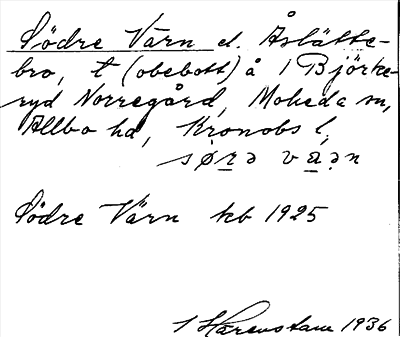 Södre Värn el. Åslätte-
bro, t (obebott) å 1 Björke-
ryd Norregård, Moheda sn,
Allbo hd, Kronobs l,
sø̱rə va̱ən
Södre Värn kb 1925
1936